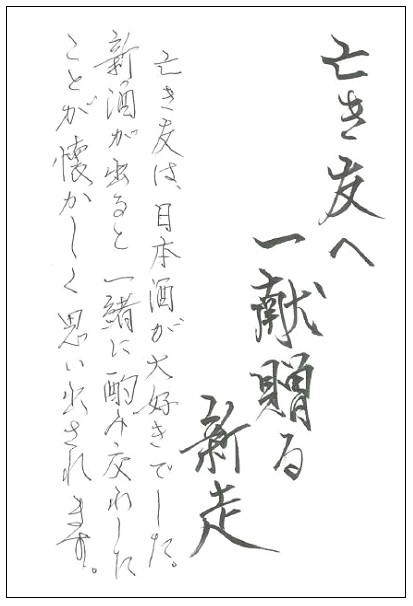 亡き友へ
一献贈る
新走
亡き友は、日本酒が大好きでした。
新酒が出ると一緒に酌み交わした
ことが懐かしく思い出されます。